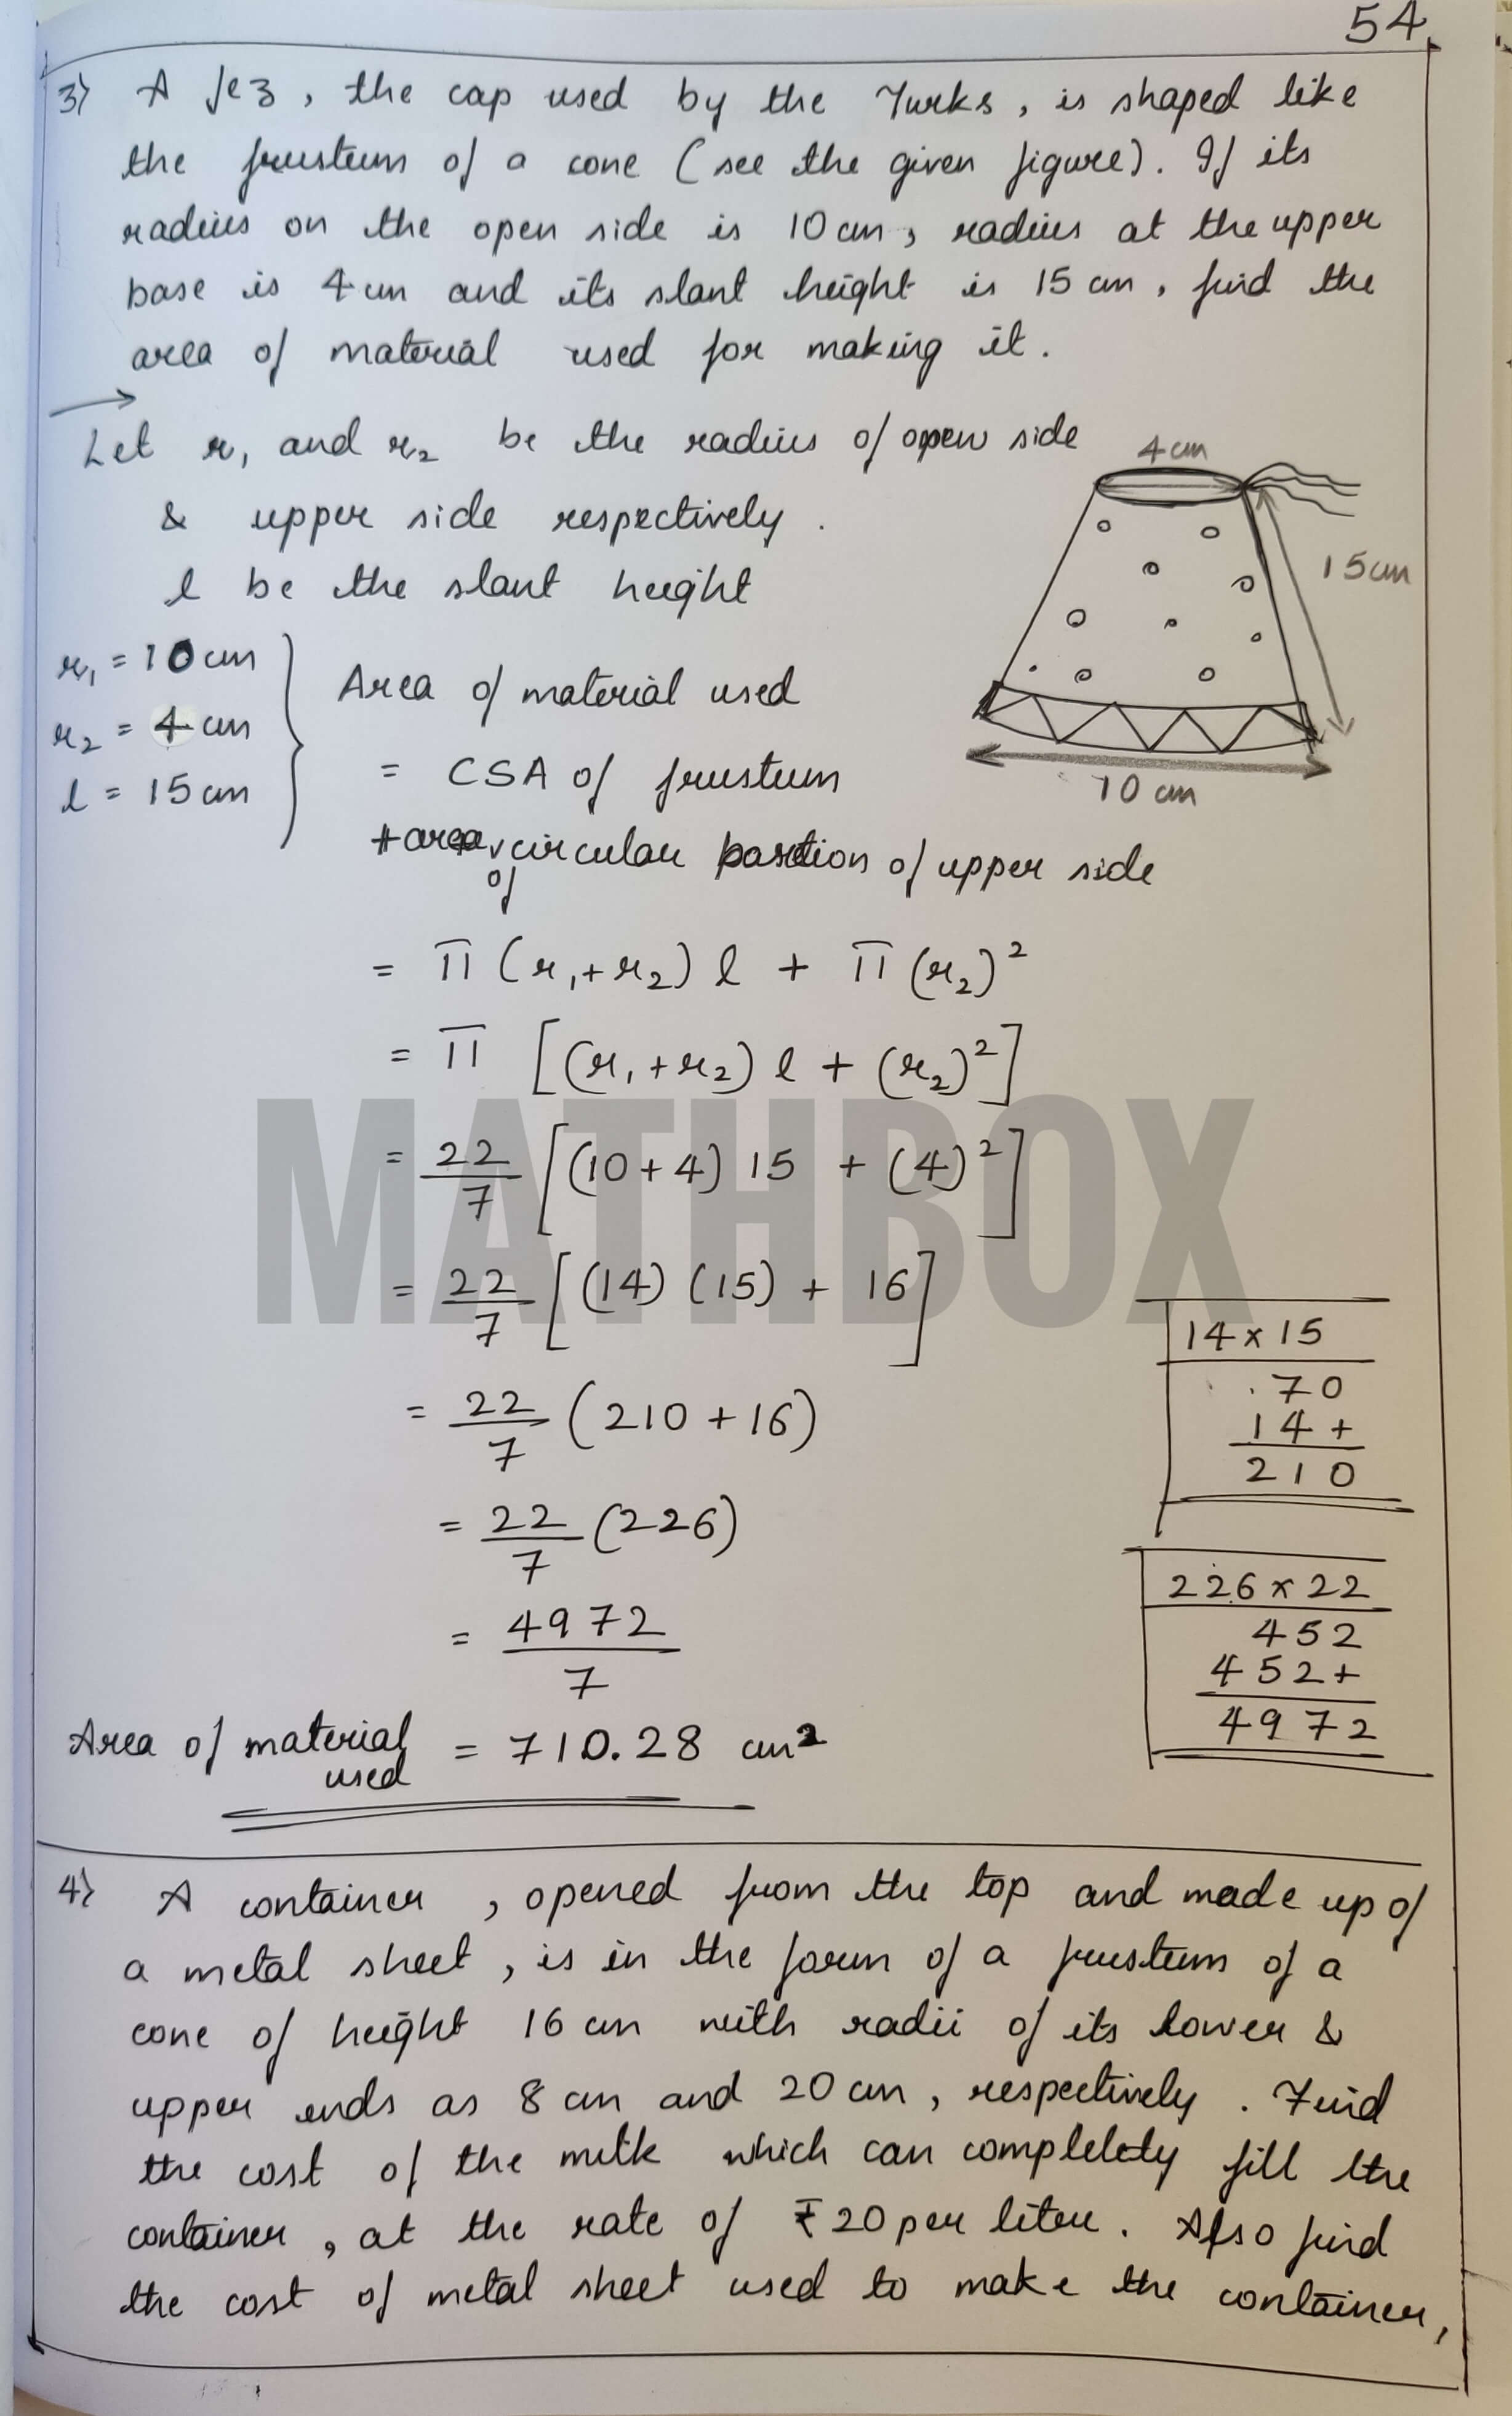 54
3) A fez, the cap used by the Turks, is shaped like
the frustum of a cone (see the given figure). If its
radius on the open side is 10 cm, radius at the upper
base is 4 cm and its slant height is 15 cm, find the
area of material used for making it.
Let r₁ and r₂ be the radius of open side
& upper side respectively.
l be the slant height
4 cm
15 cm
10 cm
r₁ = 10 cm
r₂ = 4 cm
l = 15 cm
Area of material used
= CSA of frustum
+ area of circular portion of upper side
= π (r₁+r₂) l + π (r₂)²
= π [(r₁+r₂) l + (r₂)²]
= 22/7 [(10+4) 15 + (4)²]
= 22/7 [(14) (15) + 16]
= 22/7 (210+16)
= 22/7 (226)
= 4972/7
Area of material used = 710.28 cm²
14 x 15
70
14+
210
226 x 22
452
452+
4972
MATHBOX
4) A container, opened from the top and made up of
a metal sheet, is in the form of a frustum of a
cone of height 16 cm with radii of its lower &
upper ends as 8 cm and 20 cm, respectively. Find
the cost of the milk which can completely fill the
container, at the rate of ₹20 per liter. Also find
the cost of metal sheet used to make the container,